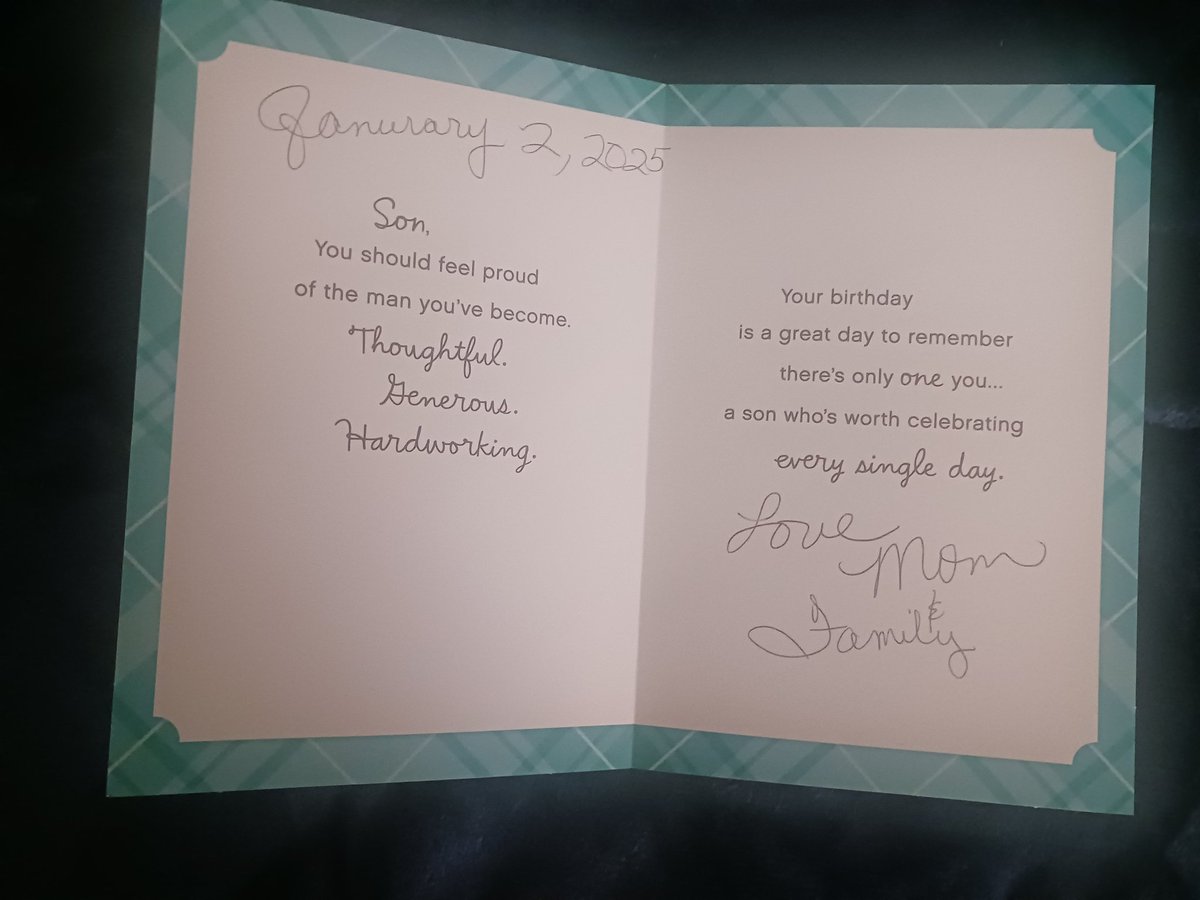 Janurary 2, 2025
Son,
You should feel proud
of the man you've become.
Thoughtful.
Generous.
Hardworking.
Your birthday
is a great day to remember
there's only one you...
a son who's worth celebrating
every single day.
Love
Mom
&
Family